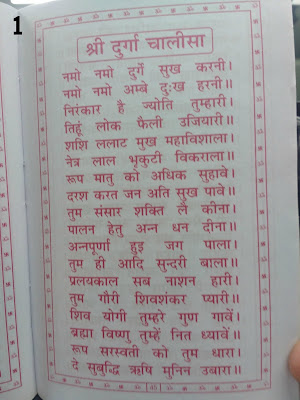 1
श्री दुर्गा चालीसा
नमो नमो दुर्गे सुख करनी।
नमो नमो अम्बे दुःख हरनी॥
निरंकार है ज्योति तुम्हारी।
तिहूं लोक फैली उजियारी॥
शशि ललाट मुख महाविशाला।
नेत्र लाल भृकुटी विकराला॥
रूप मातु को अधिक सुहावे।
दरश करत जन अति सुख पावे॥
तुम संसार शक्ति लै कीना।
पालन हेतु अन्न धन दीना॥
अन्नपूर्णा हुइ जग पाला।
तुम ही आदि सुन्दरी बाला॥
प्रलयकाल सब नाशन हारी।
तुम गौरी शिवशंकर प्यारी॥
शिव योगी तुम्हरे गुण गावें।
ब्रह्मा विष्णु तुम्हें नित ध्यावें॥
रूप सरस्वती को तुम धारा।
दे सुबुद्धि ऋषि मुनिन उबारा॥